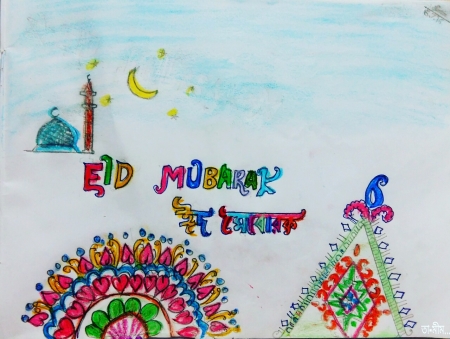 EID MUBARAK
ঈদ মোবারক